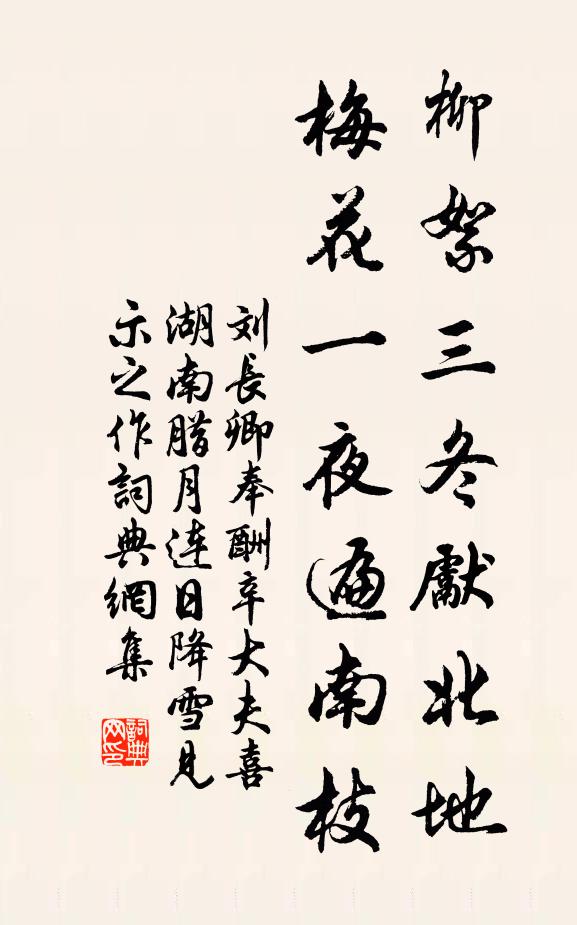 柳絮三冬獻北地
梅花一夜遍南枝
刘長卿奉酬辛大夫喜
湖南腊月连日降雪見
示之作詞典網集
詞典
网印